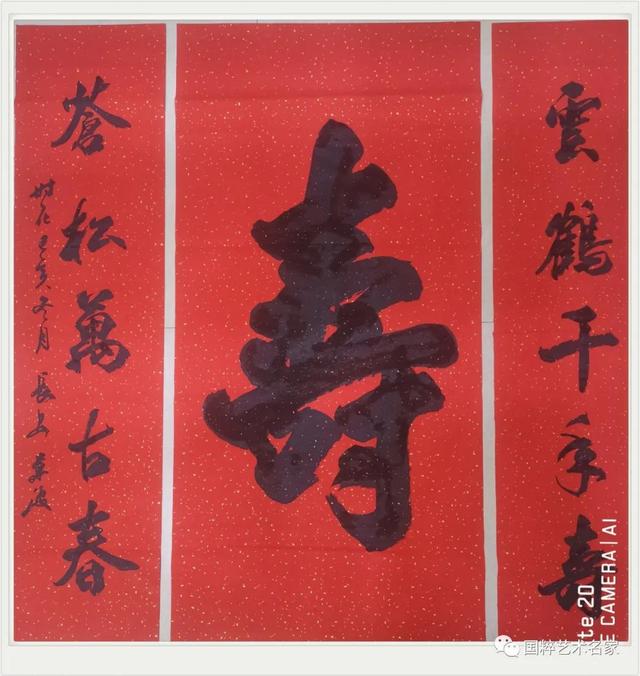 雲鶴千年壽
壽
蒼松萬古春
时在己亥冬月長安
te 20
E CAMERA | AI
国粹艺术名家